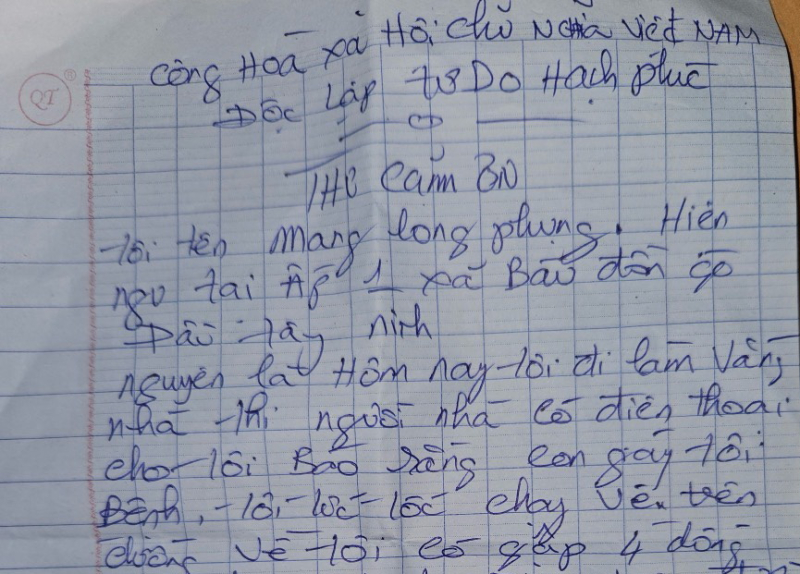 Công Hoà xả Hôi Chủ Nghĩa Việt NAM
Độc lập tự Do Hạch phúc
THƯ Cảm ƠN
tôi tên mang long phụng. Hiên
ngụ tai Ấp 1 xã Bàu đồn gò
Dầu tây ninh
nguyên lai Hôm nay tôi đi làm Vắng
nhà thì người nhà có điên thoai
cho tôi Báo rằng con gáy tôi
Bênh, tôi tức tốc chạy về. trên
đường về tôi có gặp 4 đồng
QT